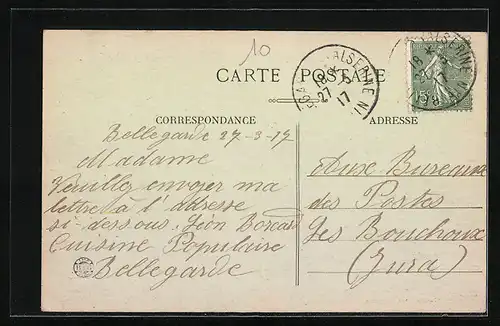 10
CARTE POSTALE
CORRESPONDANCE
ADRESSE
18 *
27 -3
17
15c
Bellegarde 27-3-17
Madame
Veuillez envoyer ma
lettre à l'adresse
si-dessous. Léon
Cuisine Populaire
Bellegarde
Aux Bureaux
des Postes
Les Bouchoux
(Jura)